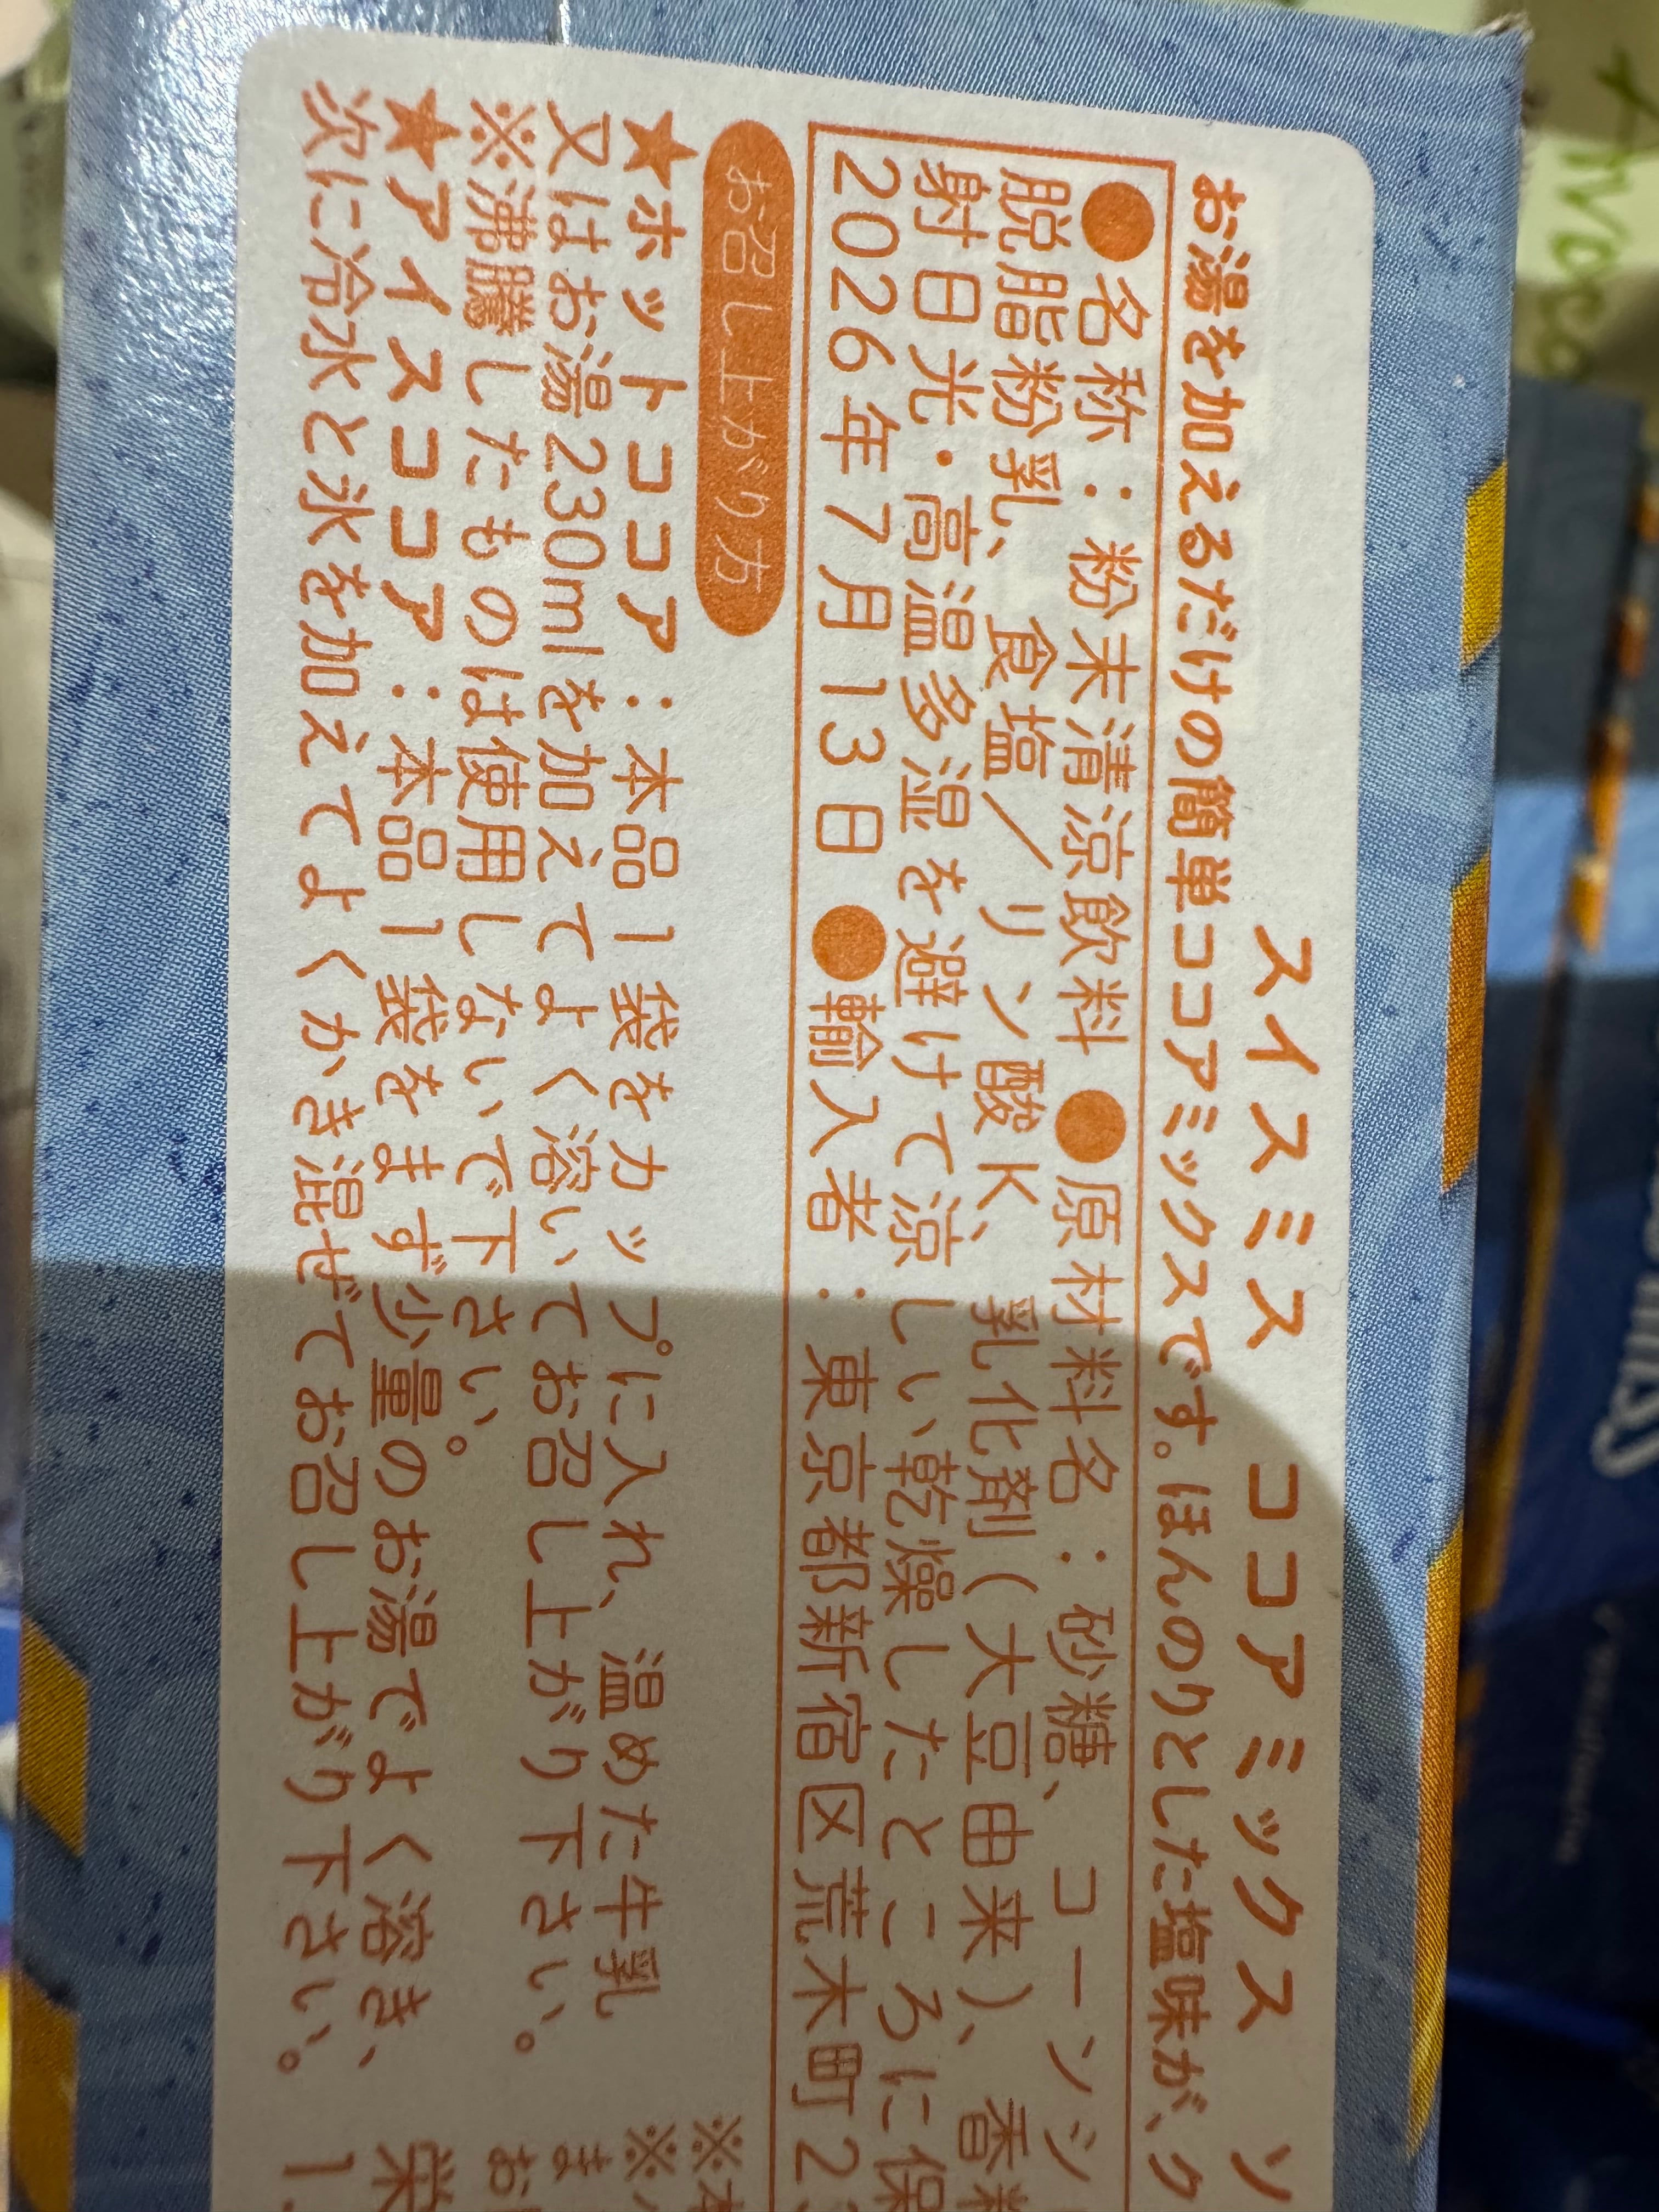 スイスミス ココアミックス ソ
お湯を加えるだけの簡単ココアミックスです。ほんのりとした塩味が、ク
●名称：粉末清涼飲料 ●原材料名：砂糖、コーンシ
脱脂粉乳、食塩／リン酸K、乳化剤（大豆由来）、香料
射日光・高温多湿を避けて涼しい乾燥したところに保
2026年7月13日 ●輸入者：東京都新宿区荒木町2
お召し上がり方
★ホットココア：本品1袋をカップに入れ、温めた牛乳
又はお湯230mlを加えてよく溶いてお召し上がり下さい。
※沸騰したものは使用しないで下さい。
★アイスココア：本品1袋をまず少量のお湯でよく溶き、
次に冷水と氷を加えてよくかき混ぜてお召し上がり下さい。
※本
※
お
栄
1.